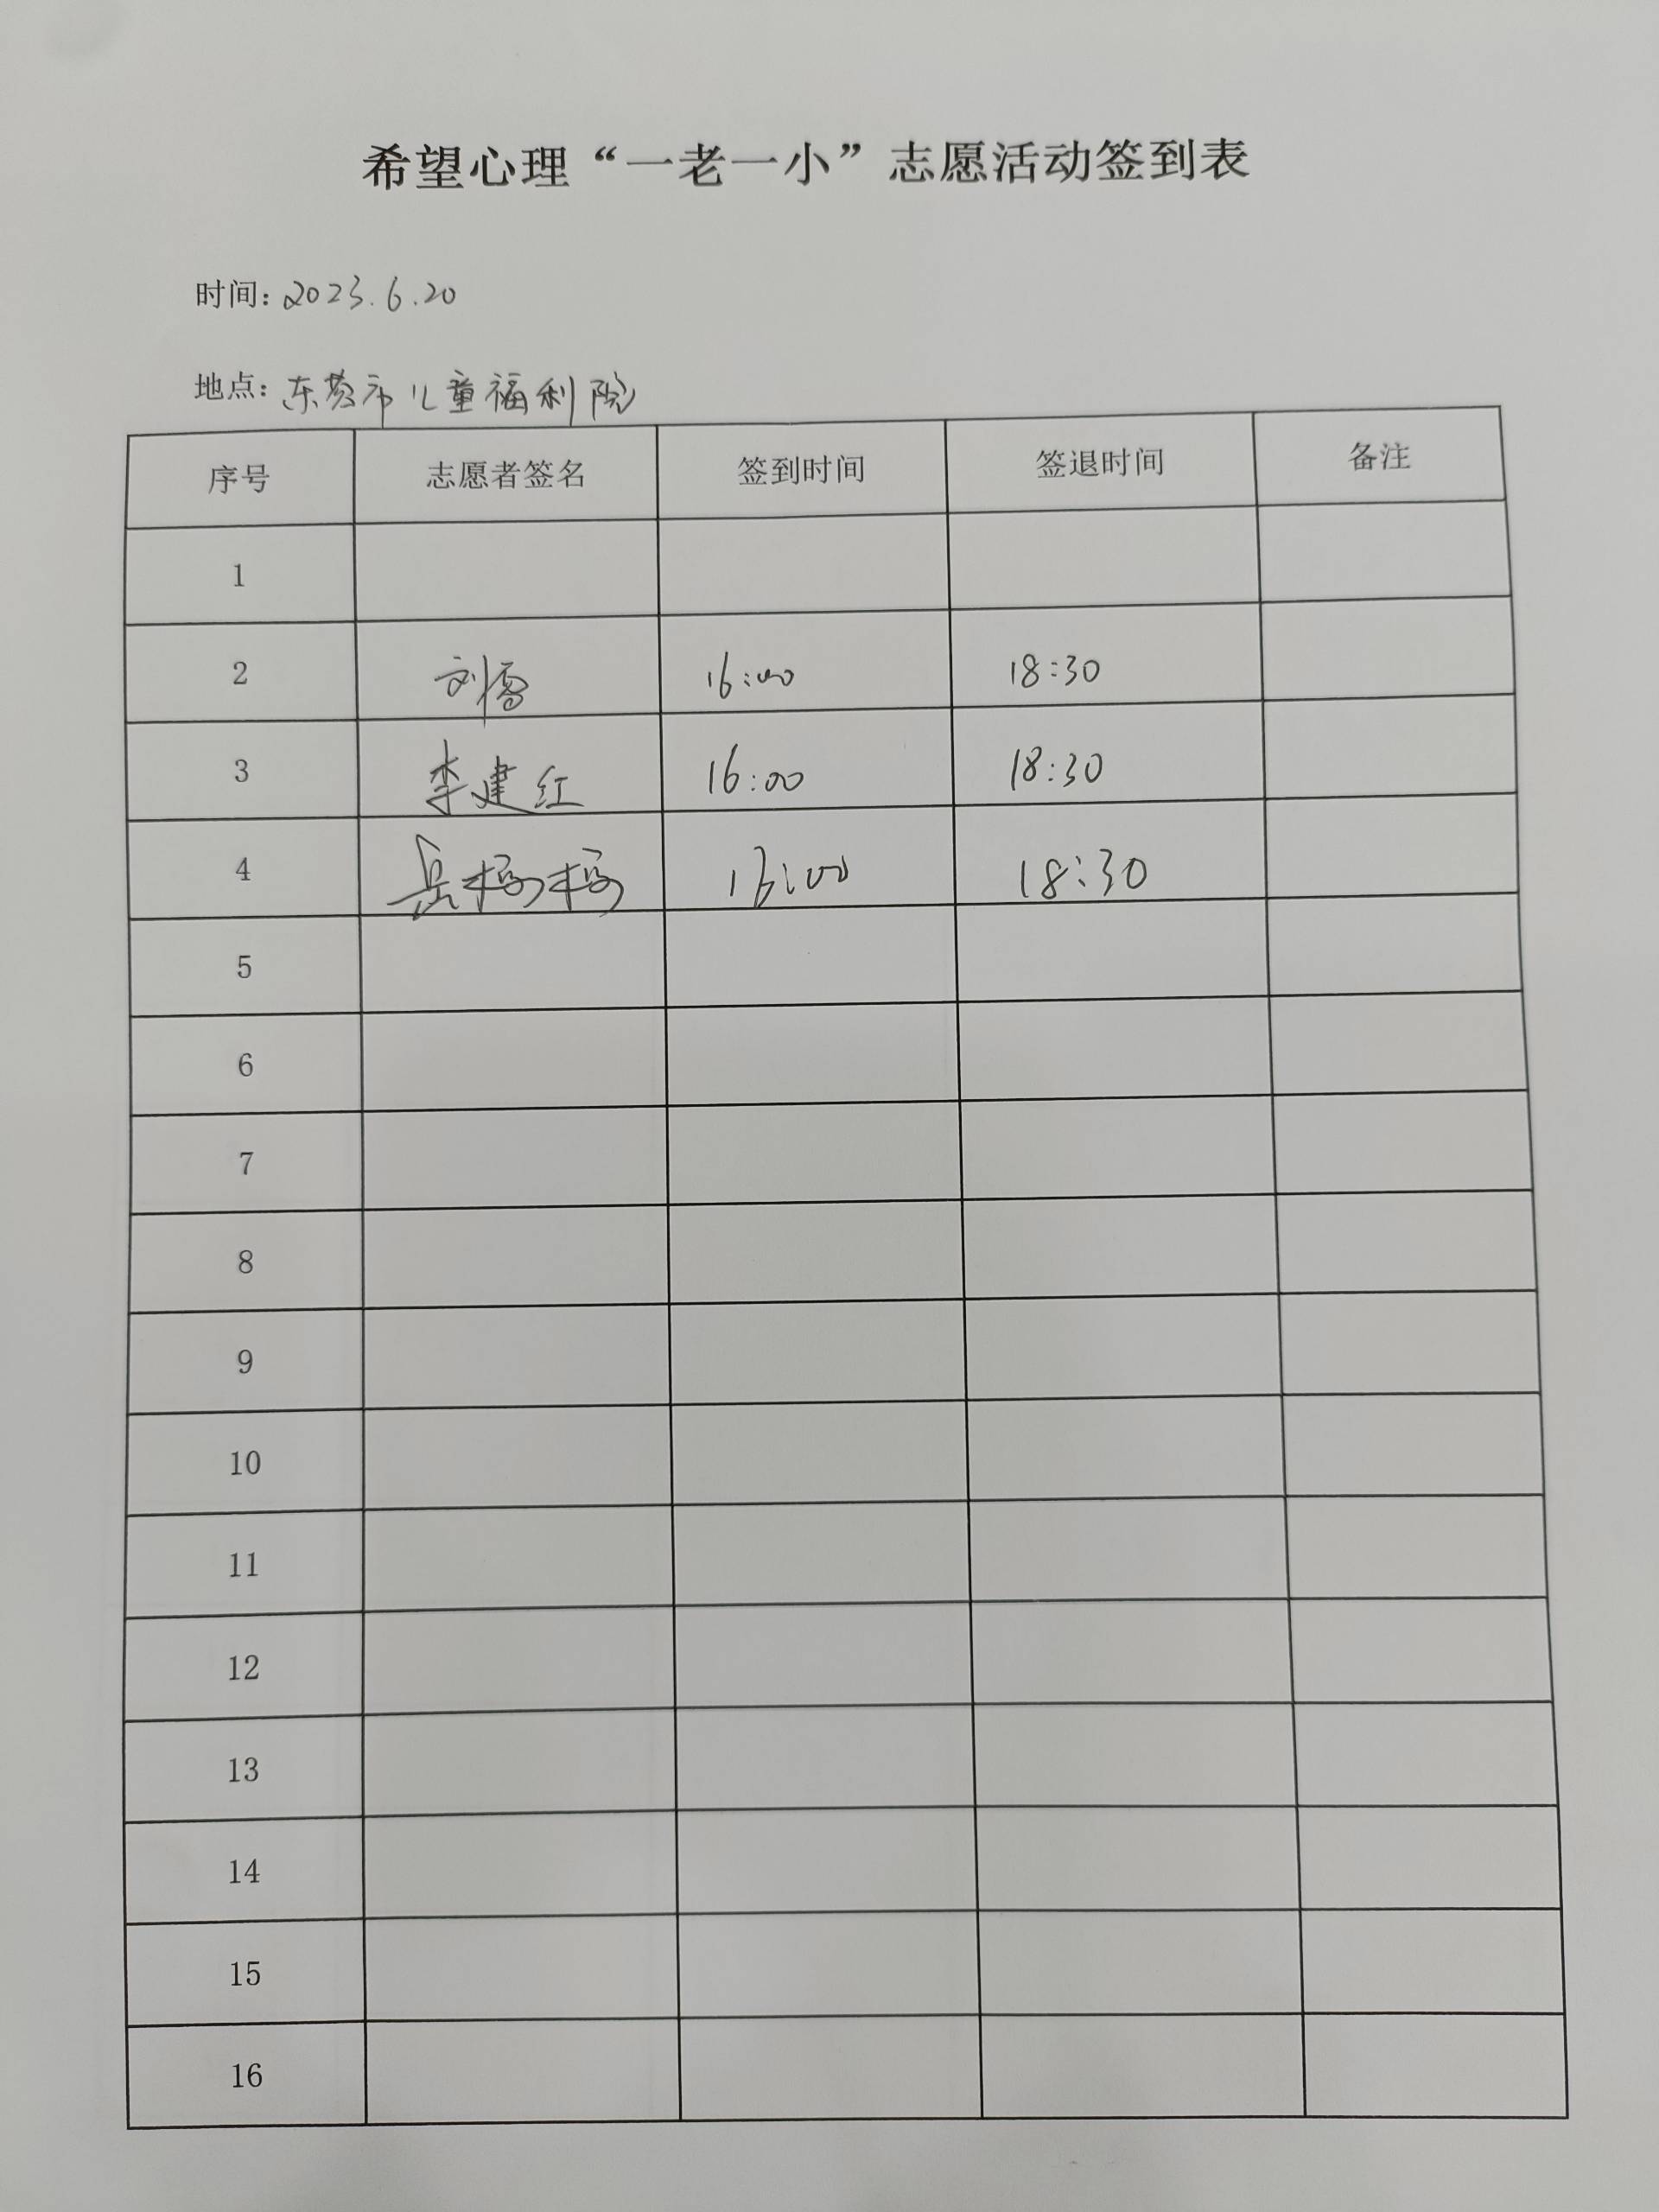 希望心理“一老一小”志愿活动签到表
时间：2023.6.20
地点：东莞市儿童福利院
序号 志愿者签名 签到时间 签退时间 备注
1
2 刘雪 16:00 18:30
3 李建红 16:00 18:30
4 岳 18:30
5
6
7
8
9
10
11
12
13
14
15
16